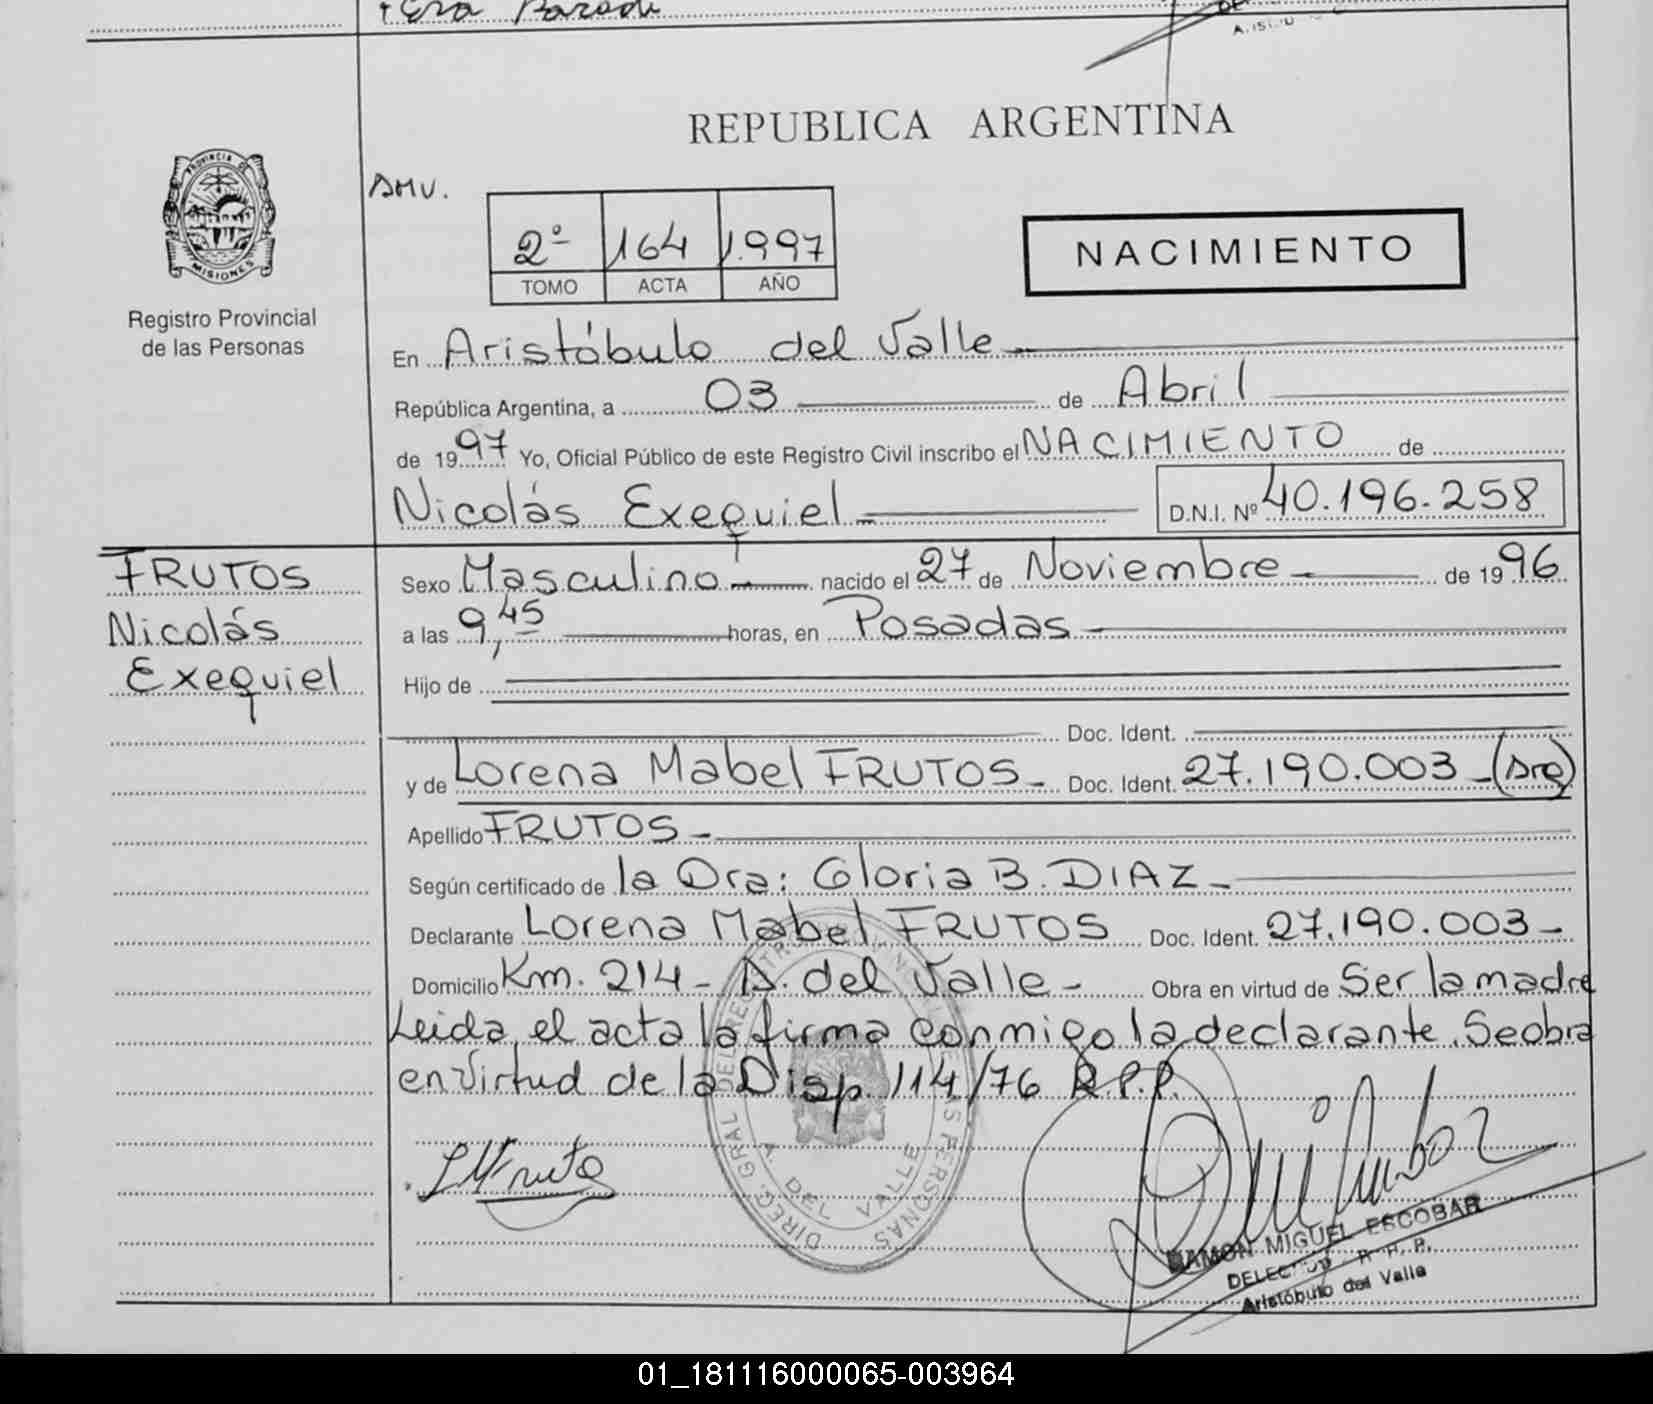 REPUBLICA ARGENTINA
PROVINCIA DE
MISIONES
Registro Provincial
de las Personas
2º 164 1.997
TOMO ACTA AÑO
NACIMIENTO
En Aristóbulo del Valle
República Argentina, a 03 de Abril
de 1997 Yo, Oficial Público de este Registro Civil inscribo el NACIMIENTO de
Nicolás Exequiel D.N.I. Nº 40.196.258
FRUTOS
Nicolás
Exequiel
Sexo Masculino nacido el 27 de Noviembre de 1996
a las 9,45 horas, en Posadas
Hijo de
Doc. Ident.
y de Lorena Mabel FRUTOS Doc. Ident. 27.190.003
Apellido FRUTOS
Según certificado de la Dra: Gloria B. DIAZ
Declarante Lorena Mabel FRUTOS Doc. Ident. 27.190.003
Domicilio Km. 214 - A. del Valle - Obra en virtud de Ser la madre
Leida el acta la firma conmigo la declarante. Se obra
en virtud de la Disp. 114/76 R.P.P.
DIREC. GRAL DEL REGISTRO PROVINCIAL DE LAS PERSONAS
A. DEL VALLE
RAMON MIGUEL ESCOBAR
Aristóbulo del Valle
01_181116000065-003964